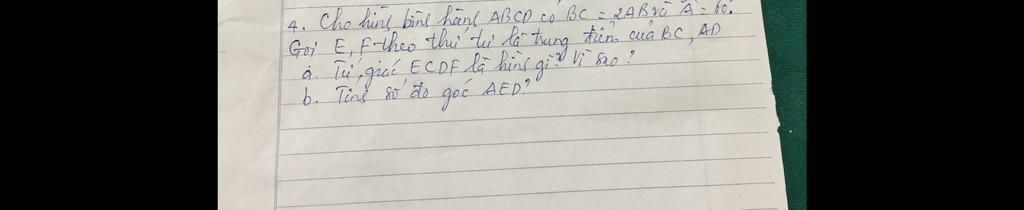 4. Cho hình bình hành ABCD có BC = 2AB và Â = 60°.
Gọi E, F theo thứ tự là trung điểm của BC, AD
a. Tứ giác ECDF là hình gì? Vì sao?
b. Tính số đo góc AED?